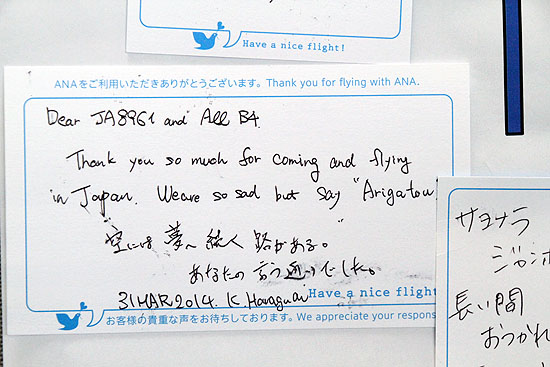 Have a nice flight!
ANAをご利用いただきありがとうございます。Thank you for flying with ANA.
Dear JA8961 and All B4.
Thank you so much for coming and flying
in Japan. We are so sad but say "Arigatou"
"空には夢へ続く路がある。"
あなたの言う通りでした。
31MAR2014. K Haraguchi
Have a nice flight
お客様の貴重な声をお待ちしております。We appreciate your respons
サヨナラ
ジャンボ
長い間
おつかれ